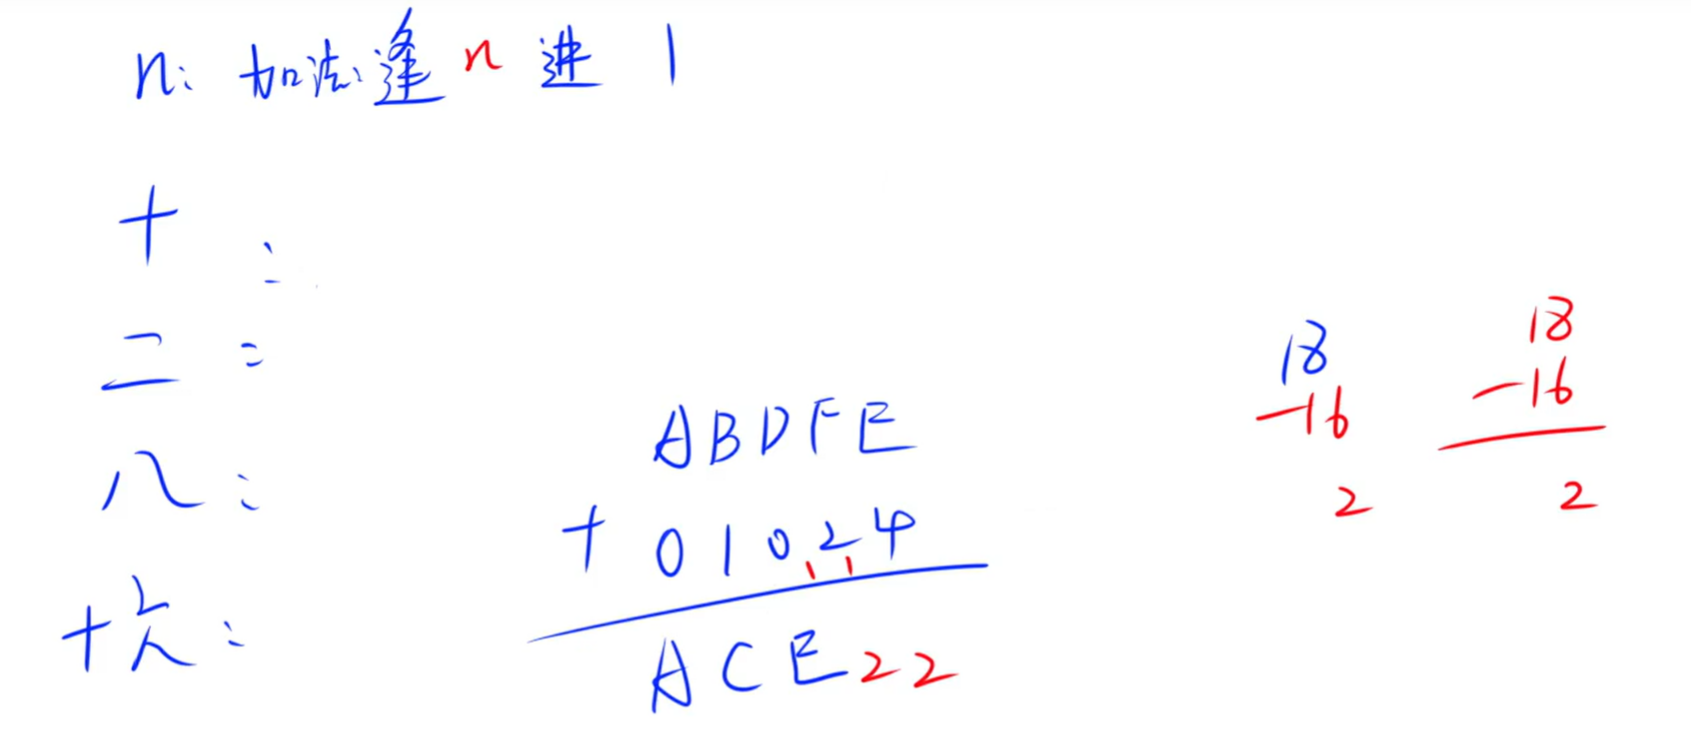 n: 加法: 逢 n 进 1
十 :
二 :
八 :
十六 :
ABDFE
+ 01024
1 1
ACE22
18
-16
2
18
-16
2